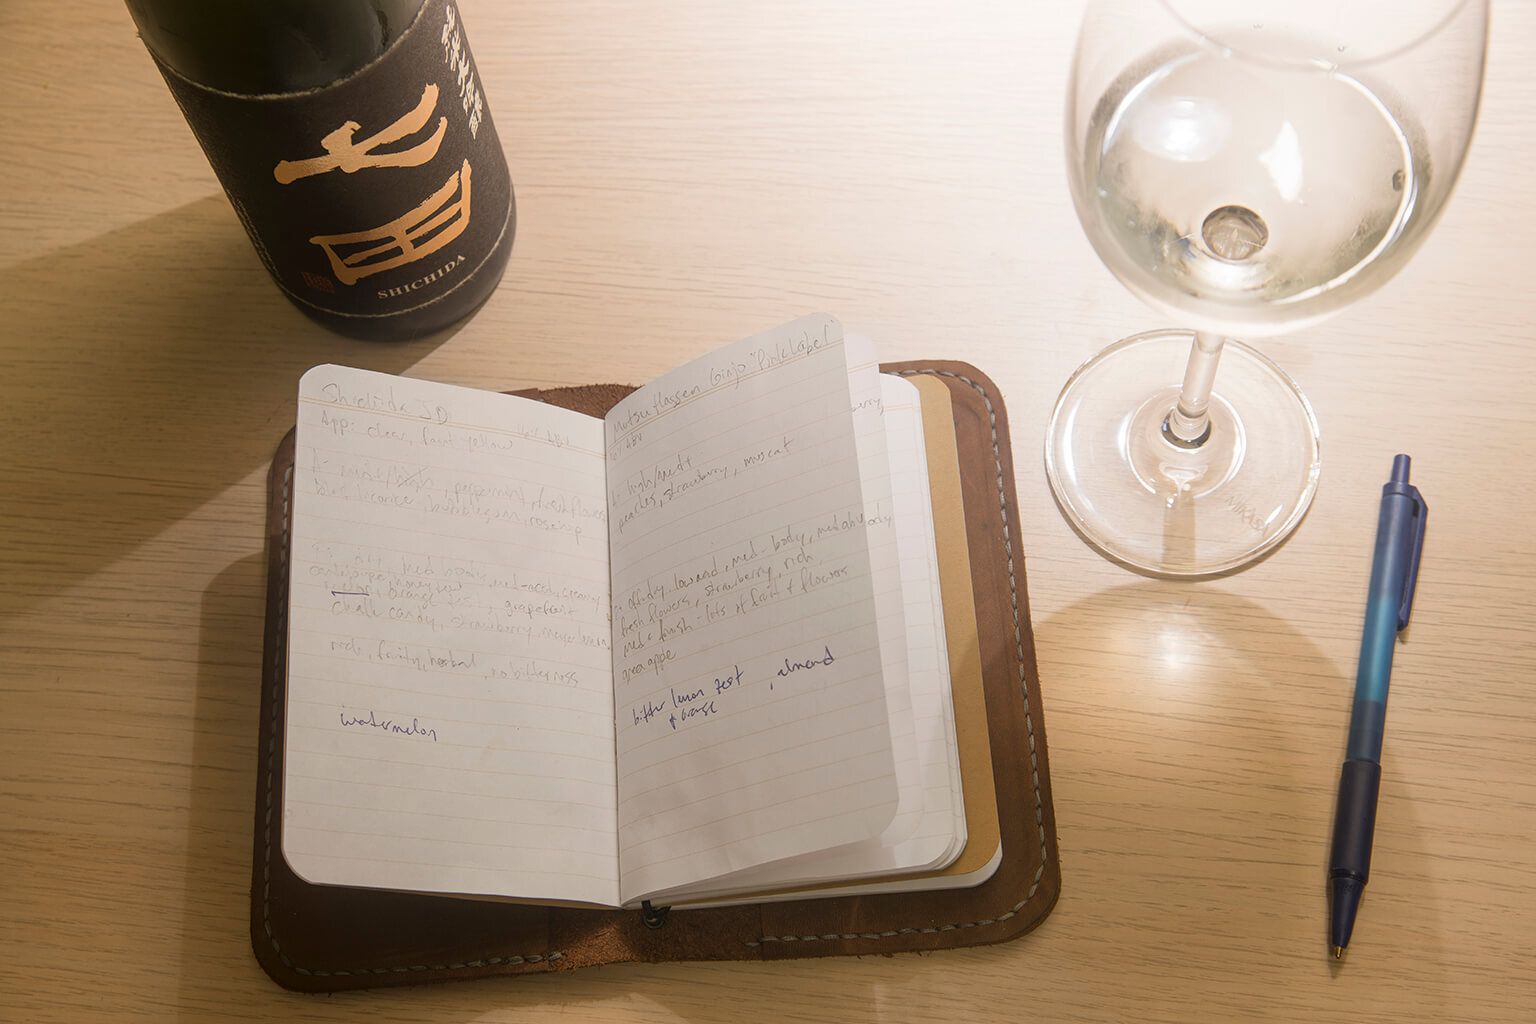 純米大吟醸
七田
SHICHIDA
Shichida JD
16% ABV
App: clear, faint yellow
A- med+/high, peppermint, fresh flowers
black licorice, bubblegum, rosehip
P: dry, med body, med-acid, creamy
cantaloupe, honeydew
melon, orange zest, grapefruit
chalk candy, strawberry, meyer lemon
rich, fruity, herbal, no bitterness
watermelon
Mutsu Hassen Ginjo "Pink Label"
16% ABV
A- high/med+
peaches, strawberry, muscat
P: off-dry, low acid, med-body, med abv body
fresh flowers, strawberry, rich
med+ finish - lots of fruit + flowers
green apple
bitter lemon zest, almond
+ orange
MIKASA